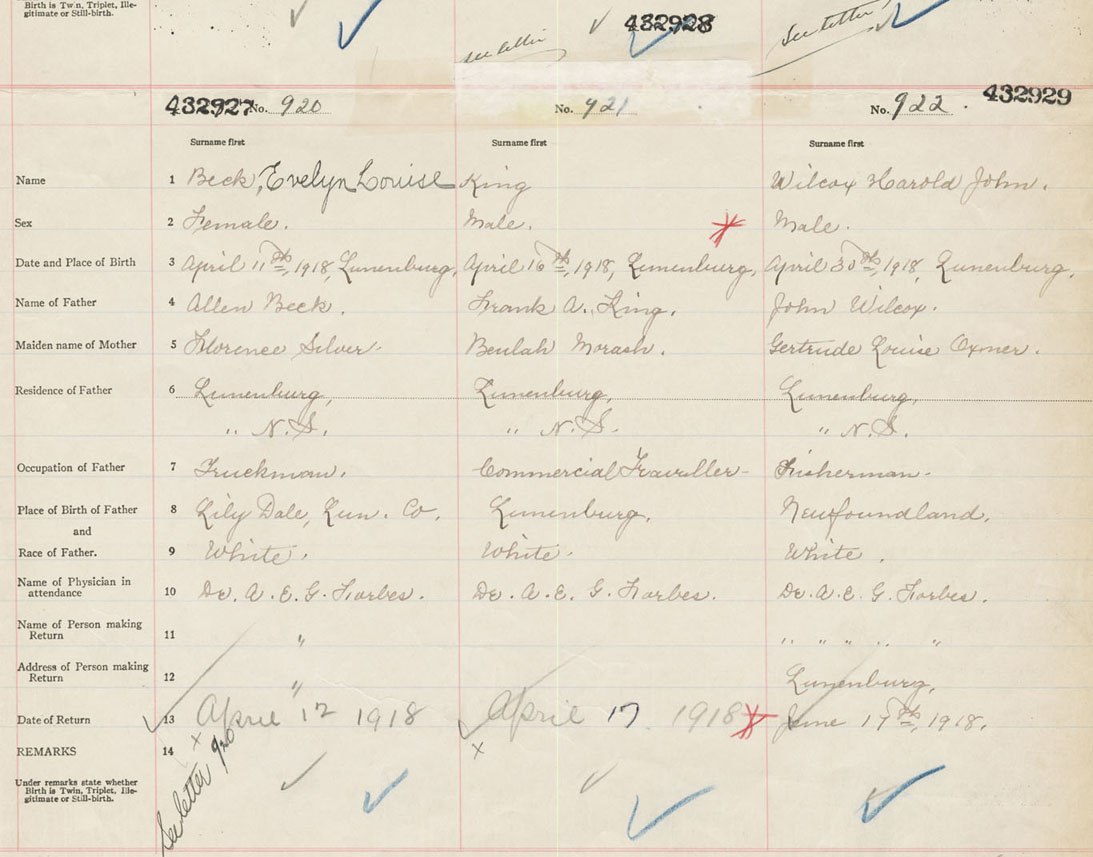 Birth is Twin, Triplet, Ille-
gitimate or Still-birth.
432928
See letter
See letter
432927 No. 920
No. 921
No. 922. 432929
Surname first Surname first Surname first
Name 1 Beck, Evelyn Louise King Wilcox Harold John.
Sex 2 Female. Male. Male.
Date and Place of Birth 3 April 11th, 1918, Lunenburg, April 16th, 1918, Lunenburg, April 30th, 1918, Lunenburg,
Name of Father 4 Allen Beck. Frank A. King. John Wilcox.
Maiden name of Mother 5 Florence Silver. Beulah Morash. Gertrude Louise Oxner.
Residence of Father 6 Lunenburg, Lunenburg, Lunenburg,
" N.S. " N.S. " N.S.
Occupation of Father 7 Truckman. Commercial Traveller- Fisherman-
Place of Birth of Father 8 Lily Dale, Lun. Co. Lunenburg. Newfoundland.
and
Race of Father. 9 White. White. White.
Name of Physician in
attendance 10 Dr. A. E. G. Forbes. Dr. A. E. G. Forbes. Dr. A. E. G. Forbes.
Name of Person making
Return 11 " " " " " "
Address of Person making
Return 12 " Lunenburg,
Date of Return 13 April 12 1918 April 17 1918 June 17th, 1918.
REMARKS 14 x x
See letter 920
Under remarks state whether
Birth is Twin, Triplet, Ille-
gitimate or Still-birth.